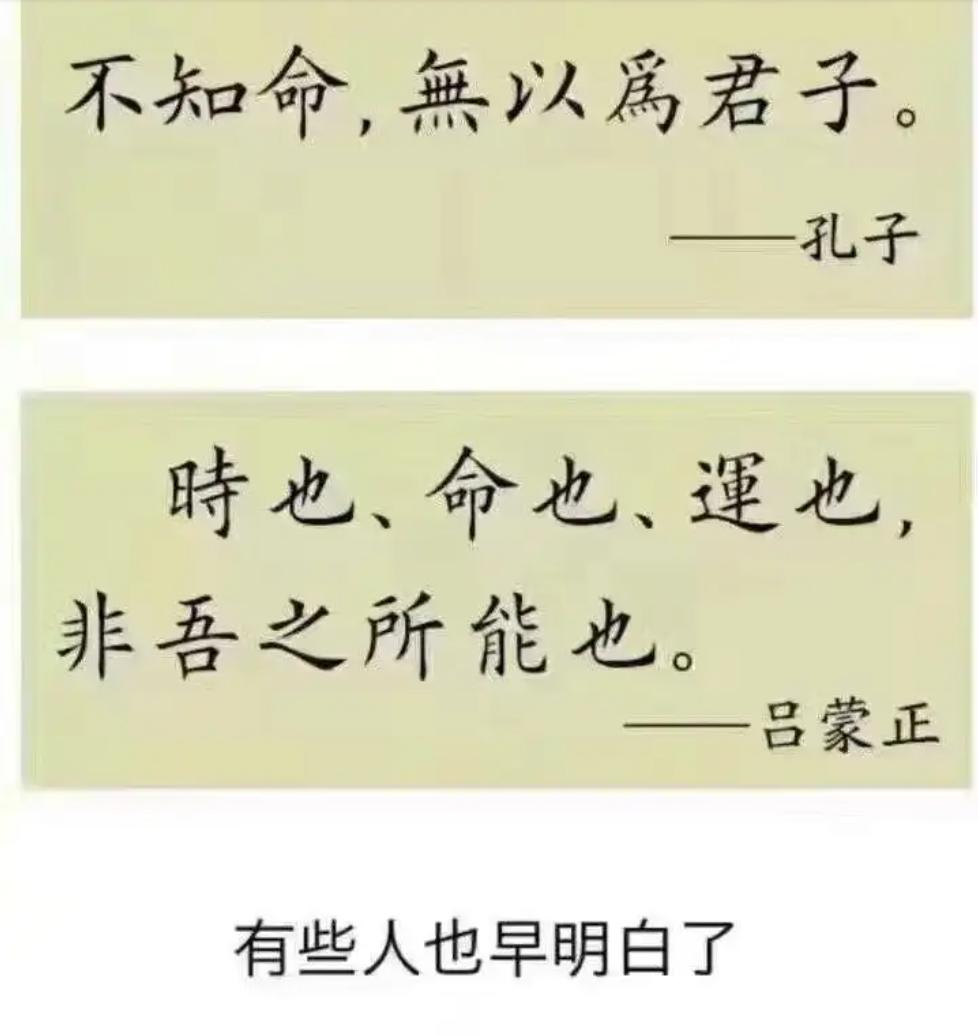 不知命,無以爲君子。
——孔子
時也、命也、運也,
非吾之所能也。
——吕蒙正
有些人也早明白了